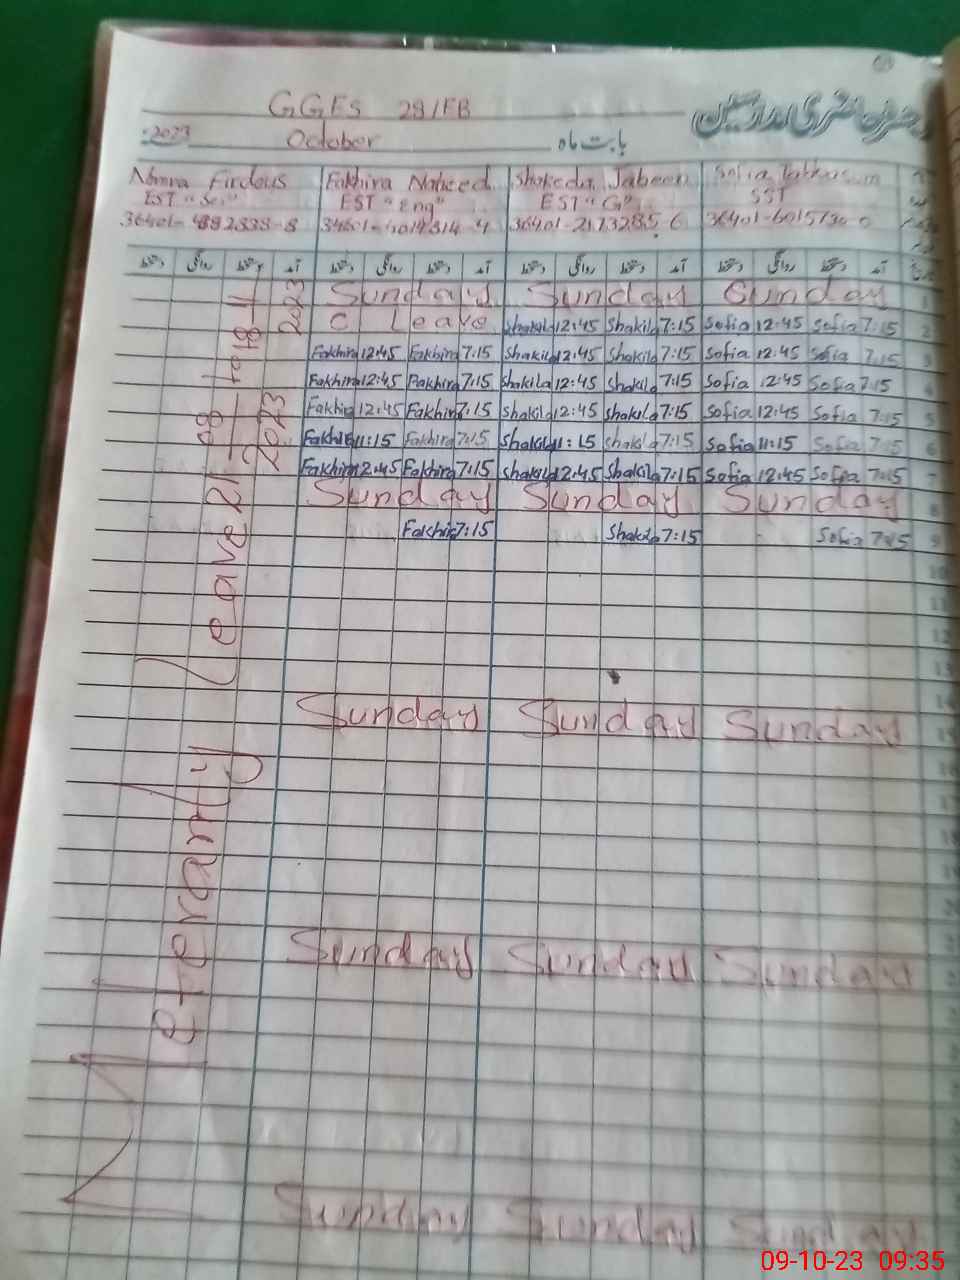 GGES 28/FB
حاضری مدرسین
2023 October بابت ماہ
Firdous Fakhira Naheed Shakeela Jabeen Sofia
EST "Sc" EST "Eng" EST "G" SST
دستخط روانگی دستخط آمد دستخط روانگی دستخط آمد دستخط روانگی دستخط آمد دستخط روانگی دستخط آمد
Sunday Sunday Sunday 1
C Leave Shakila 12:45 Shakila 7:15 Sofia 12:45 Sofia 7:15 2
Fakhira 12:45 Fakhira 7:15 Shakila 12:45 Shakila 7:15 Sofia 12:45 Sofia 7:15 3
Fakhira 12:45 Fakhira 7:15 Shakila 12:45 Shakila 7:15 Sofia 12:45 Sofia 7:15 4
Fakhira 12:45 Fakhira 7:15 Shakila 12:45 Shakila 7:15 Sofia 12:45 Sofia 7:15 5
Fakhira 11:15 Fakhira 7:15 Shakila 11:15 Shakila 7:15 Sofia 11:15 Sofia 7:15 6
Fakhira 12:45 Fakhira 7:15 Shakila 12:45 Shakila 7:15 Sofia 12:45 Sofia 7:15 7
Sunday Sunday Sunday 8
Fakhira 7:15 Shakila 7:15 Sofia 7:15 9
10
11
12
13
14
Sunday Sunday Sunday 15
16
17
18
Sunday Sunday Sunday
Sunday Sunday Sunday
leave 21-08-2023 to 18-11-2023
09-10-23 09:35